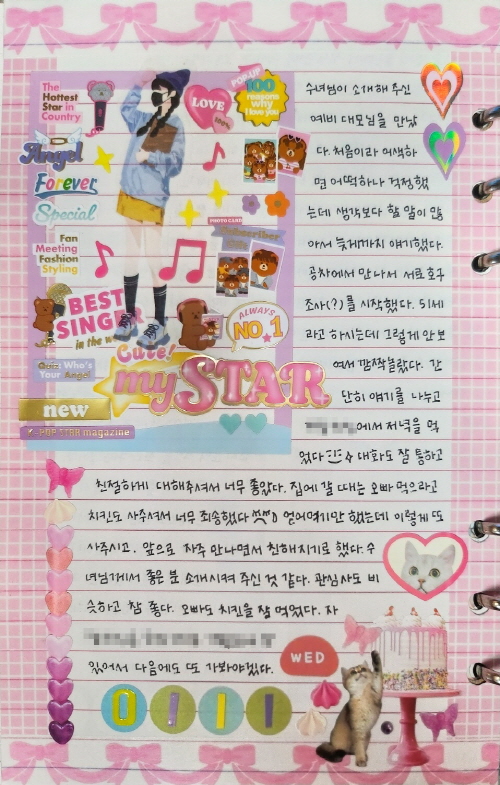 The
Hottest
Star in
Country
Angel
Forever
Special
Fan
Meeting
Fashion
Styling
LOVE
100%
POP-UP
100
reasons
why
I love you
PHOTO CARD
Subscriber
Gift
BEST
SINGER
in the wo
ALWAYS
NO.1
Cute!
Quiz Who's
Your Angel
my STAR
new
K-POP STAR magazine
수녀님이 소개해 주신
예비 대모님을 만났
다. 처음이라 어색하
면 어떡하나 걱정했
는데 생각보다 할 말이 많
아서 늦게까지 얘기했다.
공차에서 만나서 서로 호구
조사(?)를 시작했다. 51세
라고 하시는데 그렇게 안 보
여서 깜짝 놀랐다. 간
단히 얘기를 나누고
에서 저녁을 먹
었다 대화도 잘 통하고
친절하게 대해주셔서 너무 좋았다. 집에 갈 때는 오빠 먹으라고
치킨도 사주셔서 너무 죄송했다 얻어먹기만 했는데 이렇게 또
사주시고. 앞으로 자주 만나면서 친해지기로 했다. 수
녀님께서 좋은 분 소개시켜 주신 것 같다. 관심사도 비
슷하고 참 좋다. 오빠도 치킨을 잘 먹었다. 자
있어서 다음에도 또 가봐야겠다.
WED
0111